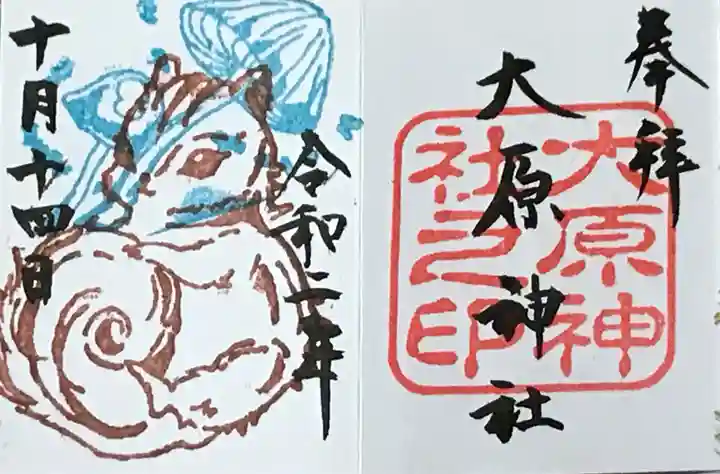 奉拝
大原神社
大原神
社之印
令和二年
十月十四日